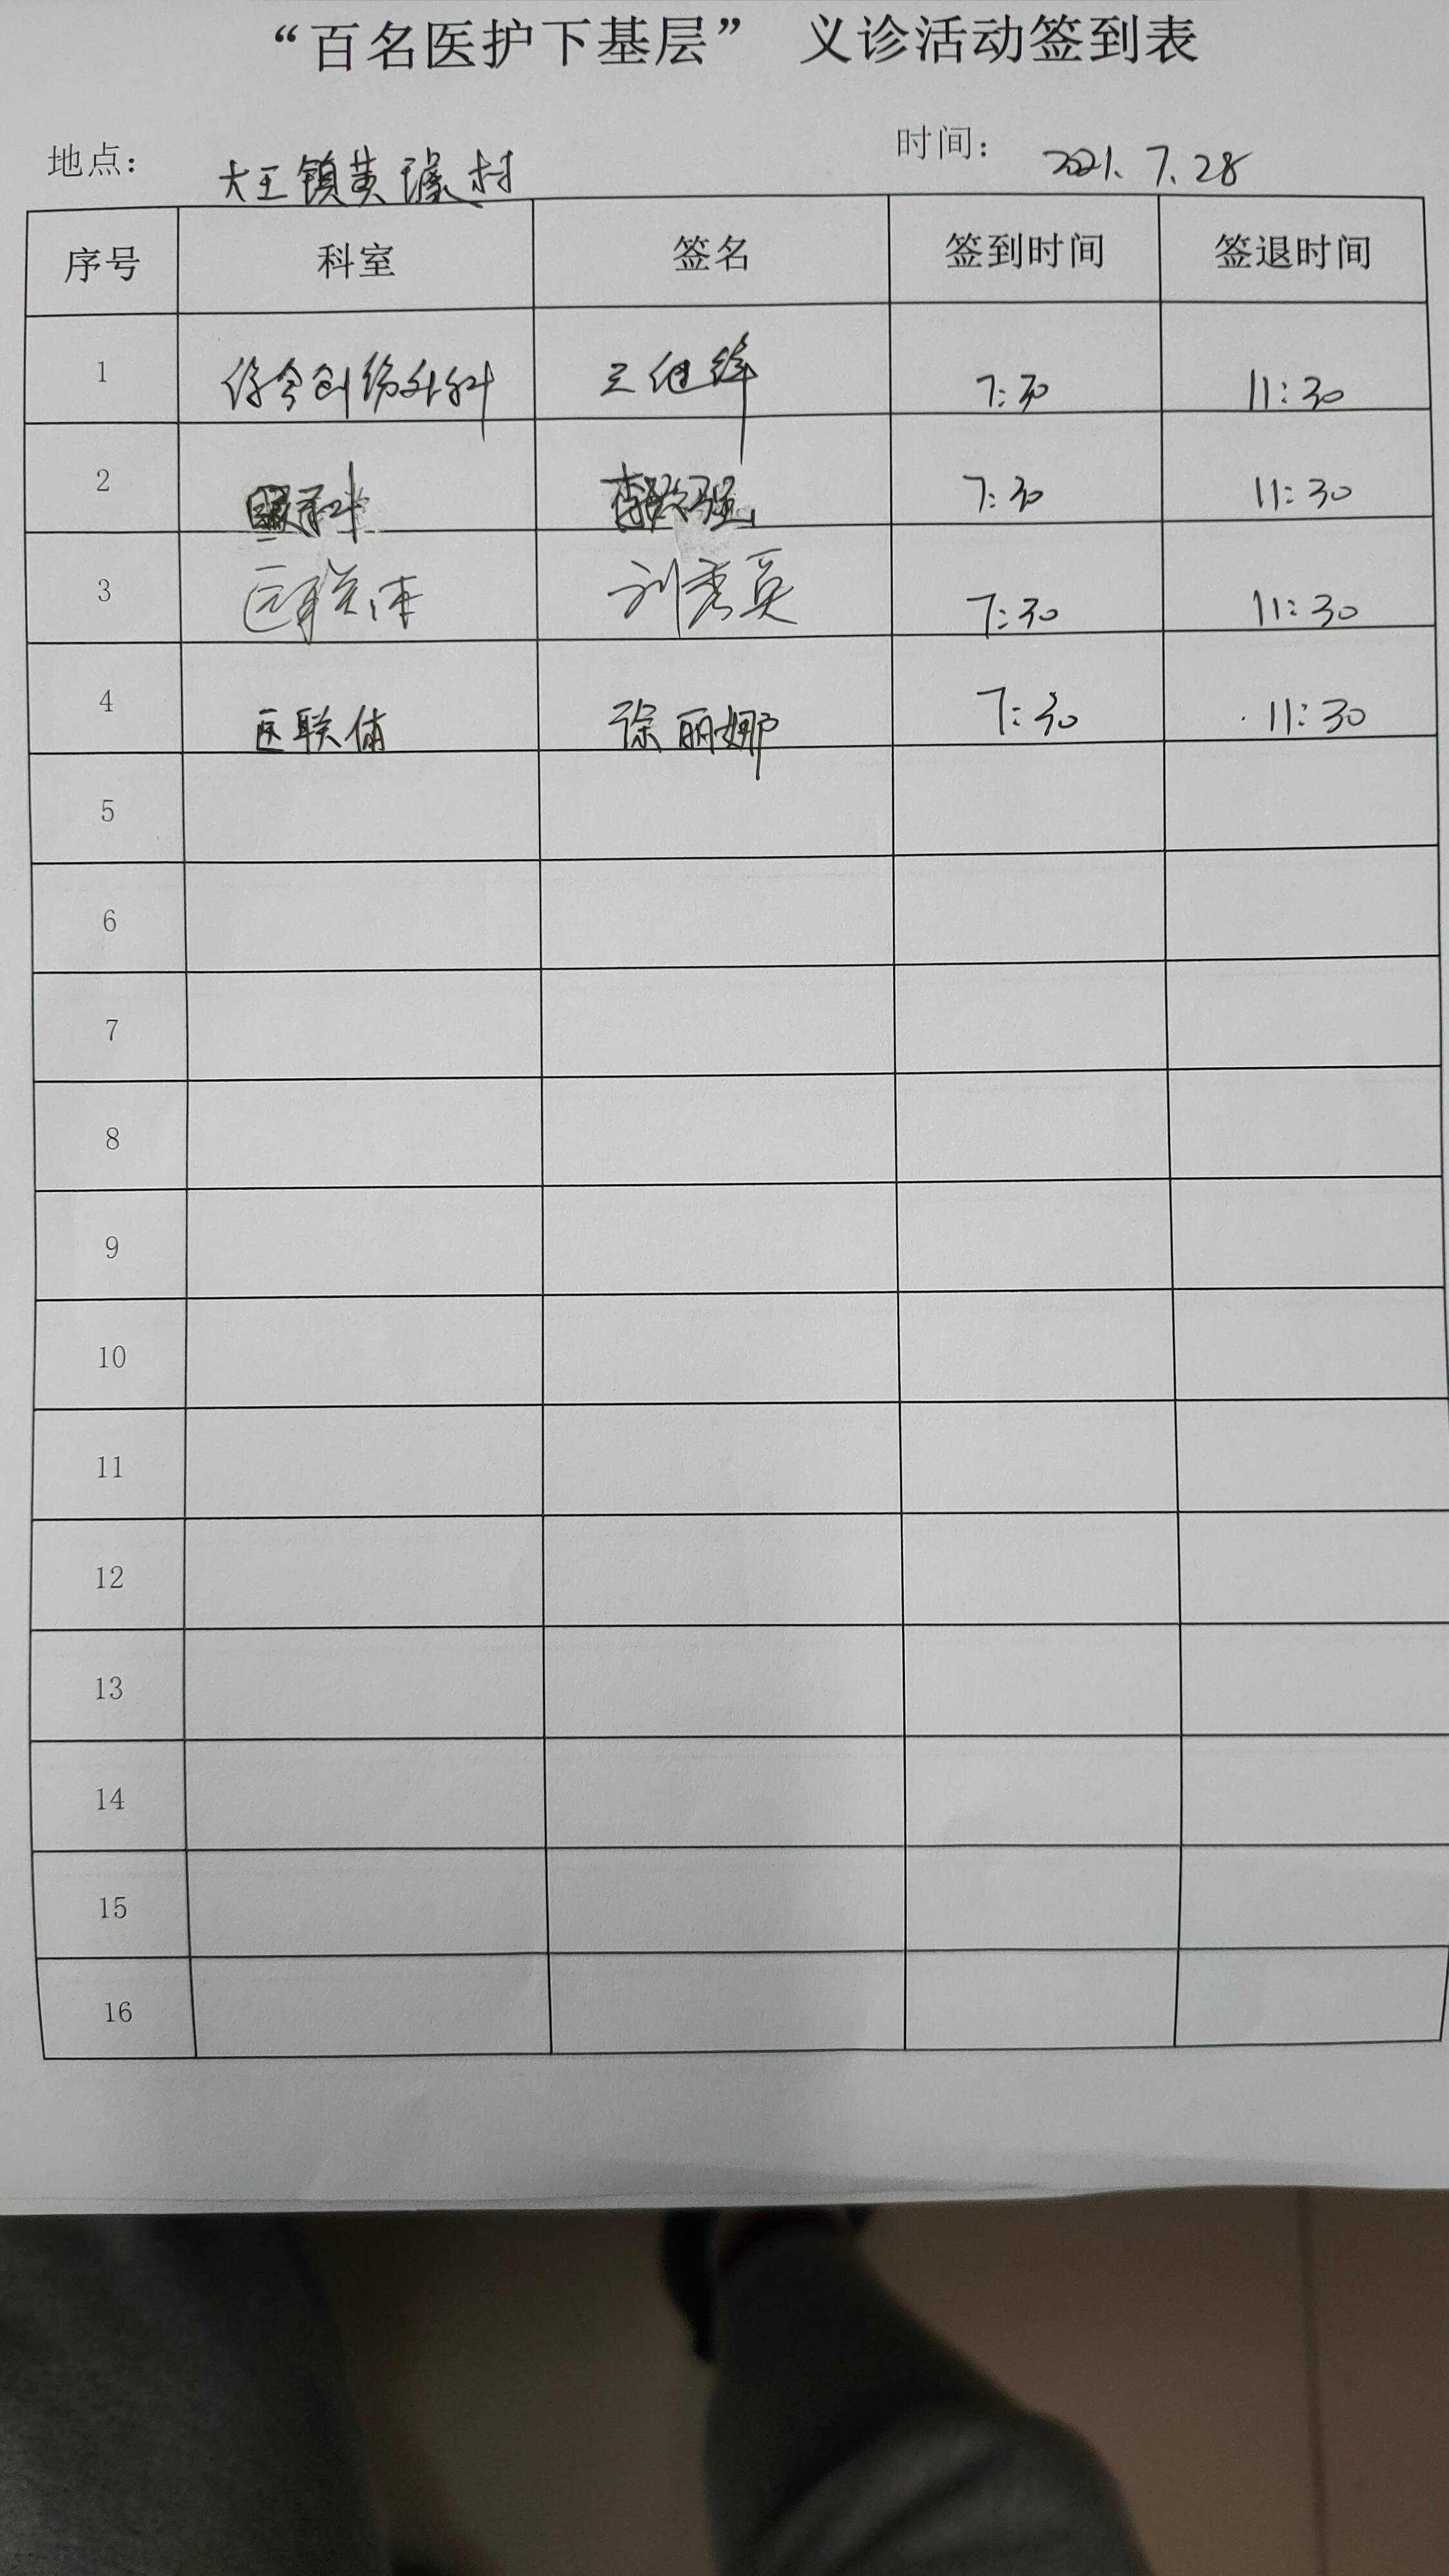 “百名医护下基层” 义诊活动签到表
地点： 大王镇黄璩村 时间： 2021.7.28
序号 科室 签名 签到时间 签退时间
1 综合创伤外科 王继锋 7:30 11:30
2 眼科 7:30 11:30
3 医联体 刘秀英 7:30 11:30
4 医联体 徐丽娜 7:30 11:30
5
6
7
8
9
10
11
12
13
14
15
16